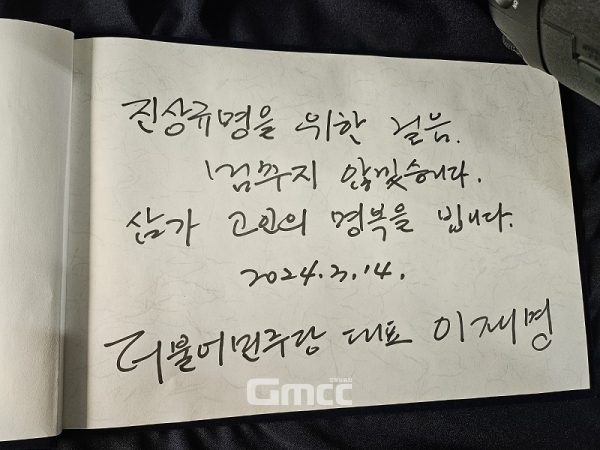 진상규명을 위한 걸음.
멈추지 않겠습니다.
삼가 고인의 명복을 빕니다.
2024.3.14.
더불어민주당 대표 이재명
Gmcc